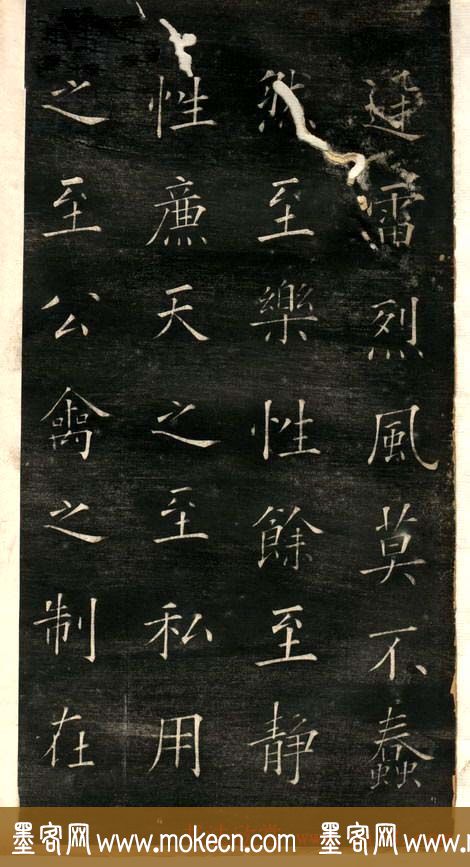 迅雷烈風莫不蠢
然至樂性餘至靜
性廉天之至私用
之至公禽之制在
墨客网 www.mokecn.com 墨客网 www.mokecn.com